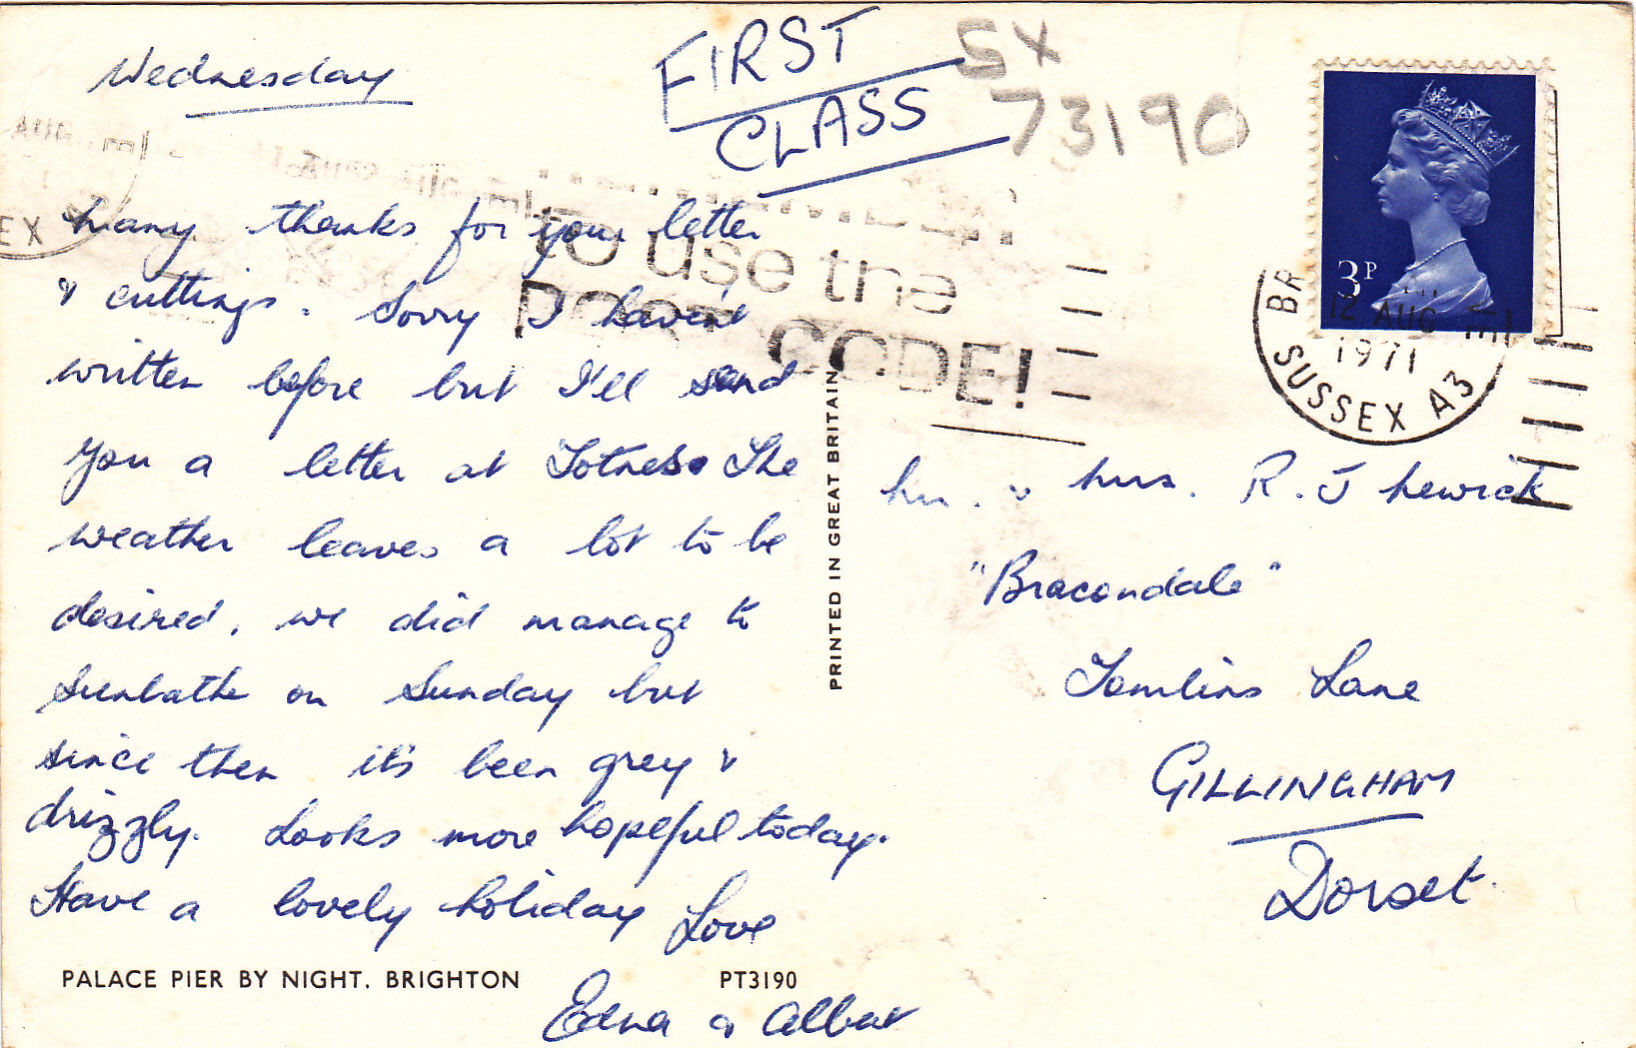 Wednesday
FIRST
CLASS
SX
73190
Many thanks for your letter
& cuttings. Sorry I haven't
written before but I'll send
you a letter at Totnes. The
weather leaves a lot to be
desired, we did manage to
sunbathe on Sunday but
since then it's been grey &
drizzly. Looks more hopeful today.
Have a lovely holiday Love
Edna & Albert
PALACE PIER BY NIGHT. BRIGHTON PT3190
PRINTED IN GREAT BRITAIN
to use the
POST CODE!
3P
BR
12 AUG
1971
SUSSEX A3
EX
Mr. & Mrs. R. J Mewick
"Bracondale"
Tomlins Lane
GILLINGHAM
Dorset.